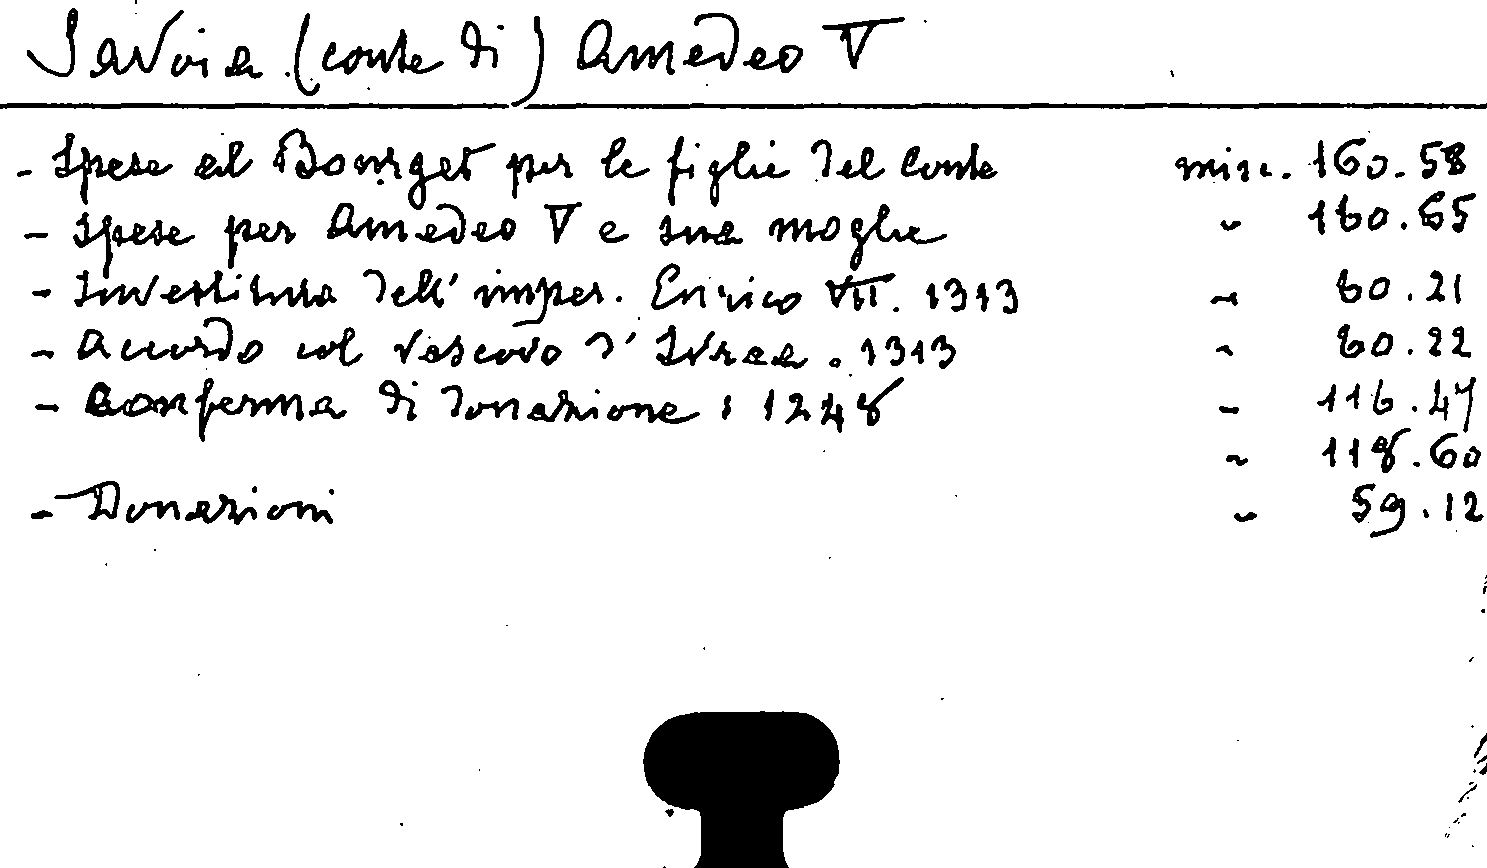 Savoia (conte di) Amedeo V
- Spese al Bourget per le figlie del conte misc. 160.58
- Spese per Amedeo V e sua moglie " 160.65
- Investitura dell'imper. Enrico VII. 1313 " 60.21
- Accordo col vescovo d'Ivrea. 1313 " 60.22
- Conferma di donazione : 1248 " 116.47
" 118.60
- Donazioni " 59.12